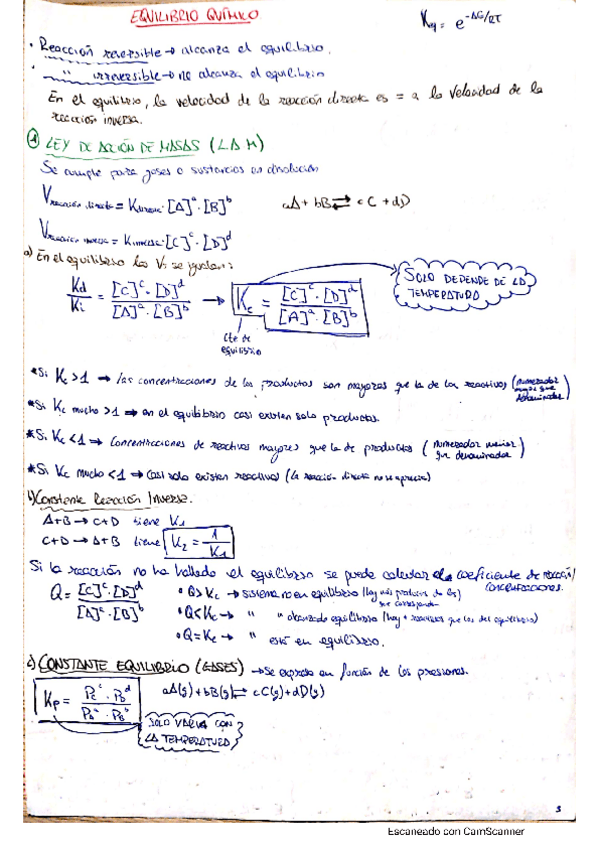 EQUILIBRIO QUÍMICO
Keq = e^-ΔG/RT
· Reacción reversible → alcanza el equilibrio.
· " irreversible → no alcanza el equilibrio
En el equilibrio, la velocidad de la reacción directa es = a la velocidad de la
reacción inversa.
① LEY DE ACCIÓN DE MASAS (LAM)
Se cumple para gases o sustancias en disolución
Vreacción directa = Kdirecta · [A]^a · [B]^b
aA + bB ⇄ cC + dD
Vreacción inversa = Kinversa · [C]^c · [D]^d
a) En el equilibrio las Vs se igualan:
Kd/Ki = [C]^c · [D]^d / [A]^a · [B]^b → Kc = [C]^c · [D]^d / [A]^a · [B]^b
SOLO DEPENDE DE LA
TEMPERATURA
Cte de
equilibrio
*Si Kc > 1 → las concentraciones de los productos son mayores que la de los reactivos (numerador
mayor que
denominador)
*Si Kc mucho > 1 → en el equilibrio casi existen solo productos.
*Si Kc < 1 → Concentraciones de reactivos mayores que la de productos (numerador menor
que denominador)
*Si Kc mucho < 1 → Casi solo existen reactivos (la reacción directa no se aprecia)
b) Constante Reacción Inversa.
A+B → C+D tiene K1
C+D → A+B tiene K2 = 1/K1
Si la reacción no ha hallado el equilibrio se puede calcular el coeficiente de reacción/
concentraciones.
Q = [C]^c · [D]^d / [A]^a · [B]^b
· Q > Kc → sistema no en equilibrio (hay más productos de los
que corresponden
· Q < Kc → " " alcanzado equilibrio (hay + reactivos que los del equilibrio)
· Q = Kc → " está en equilibrio.
c) CONSTANTE EQUILIBRIO (GASES) → Se expresa en función de las presiones.
Kp = Pc^c · PD^d / Pa^a · Pb^b
aA(g) + bB(g) ⇄ cC(g) + dD(g)
SOLO VARÍA CON
LA TEMPERATURA
Escaneado con CamScanner